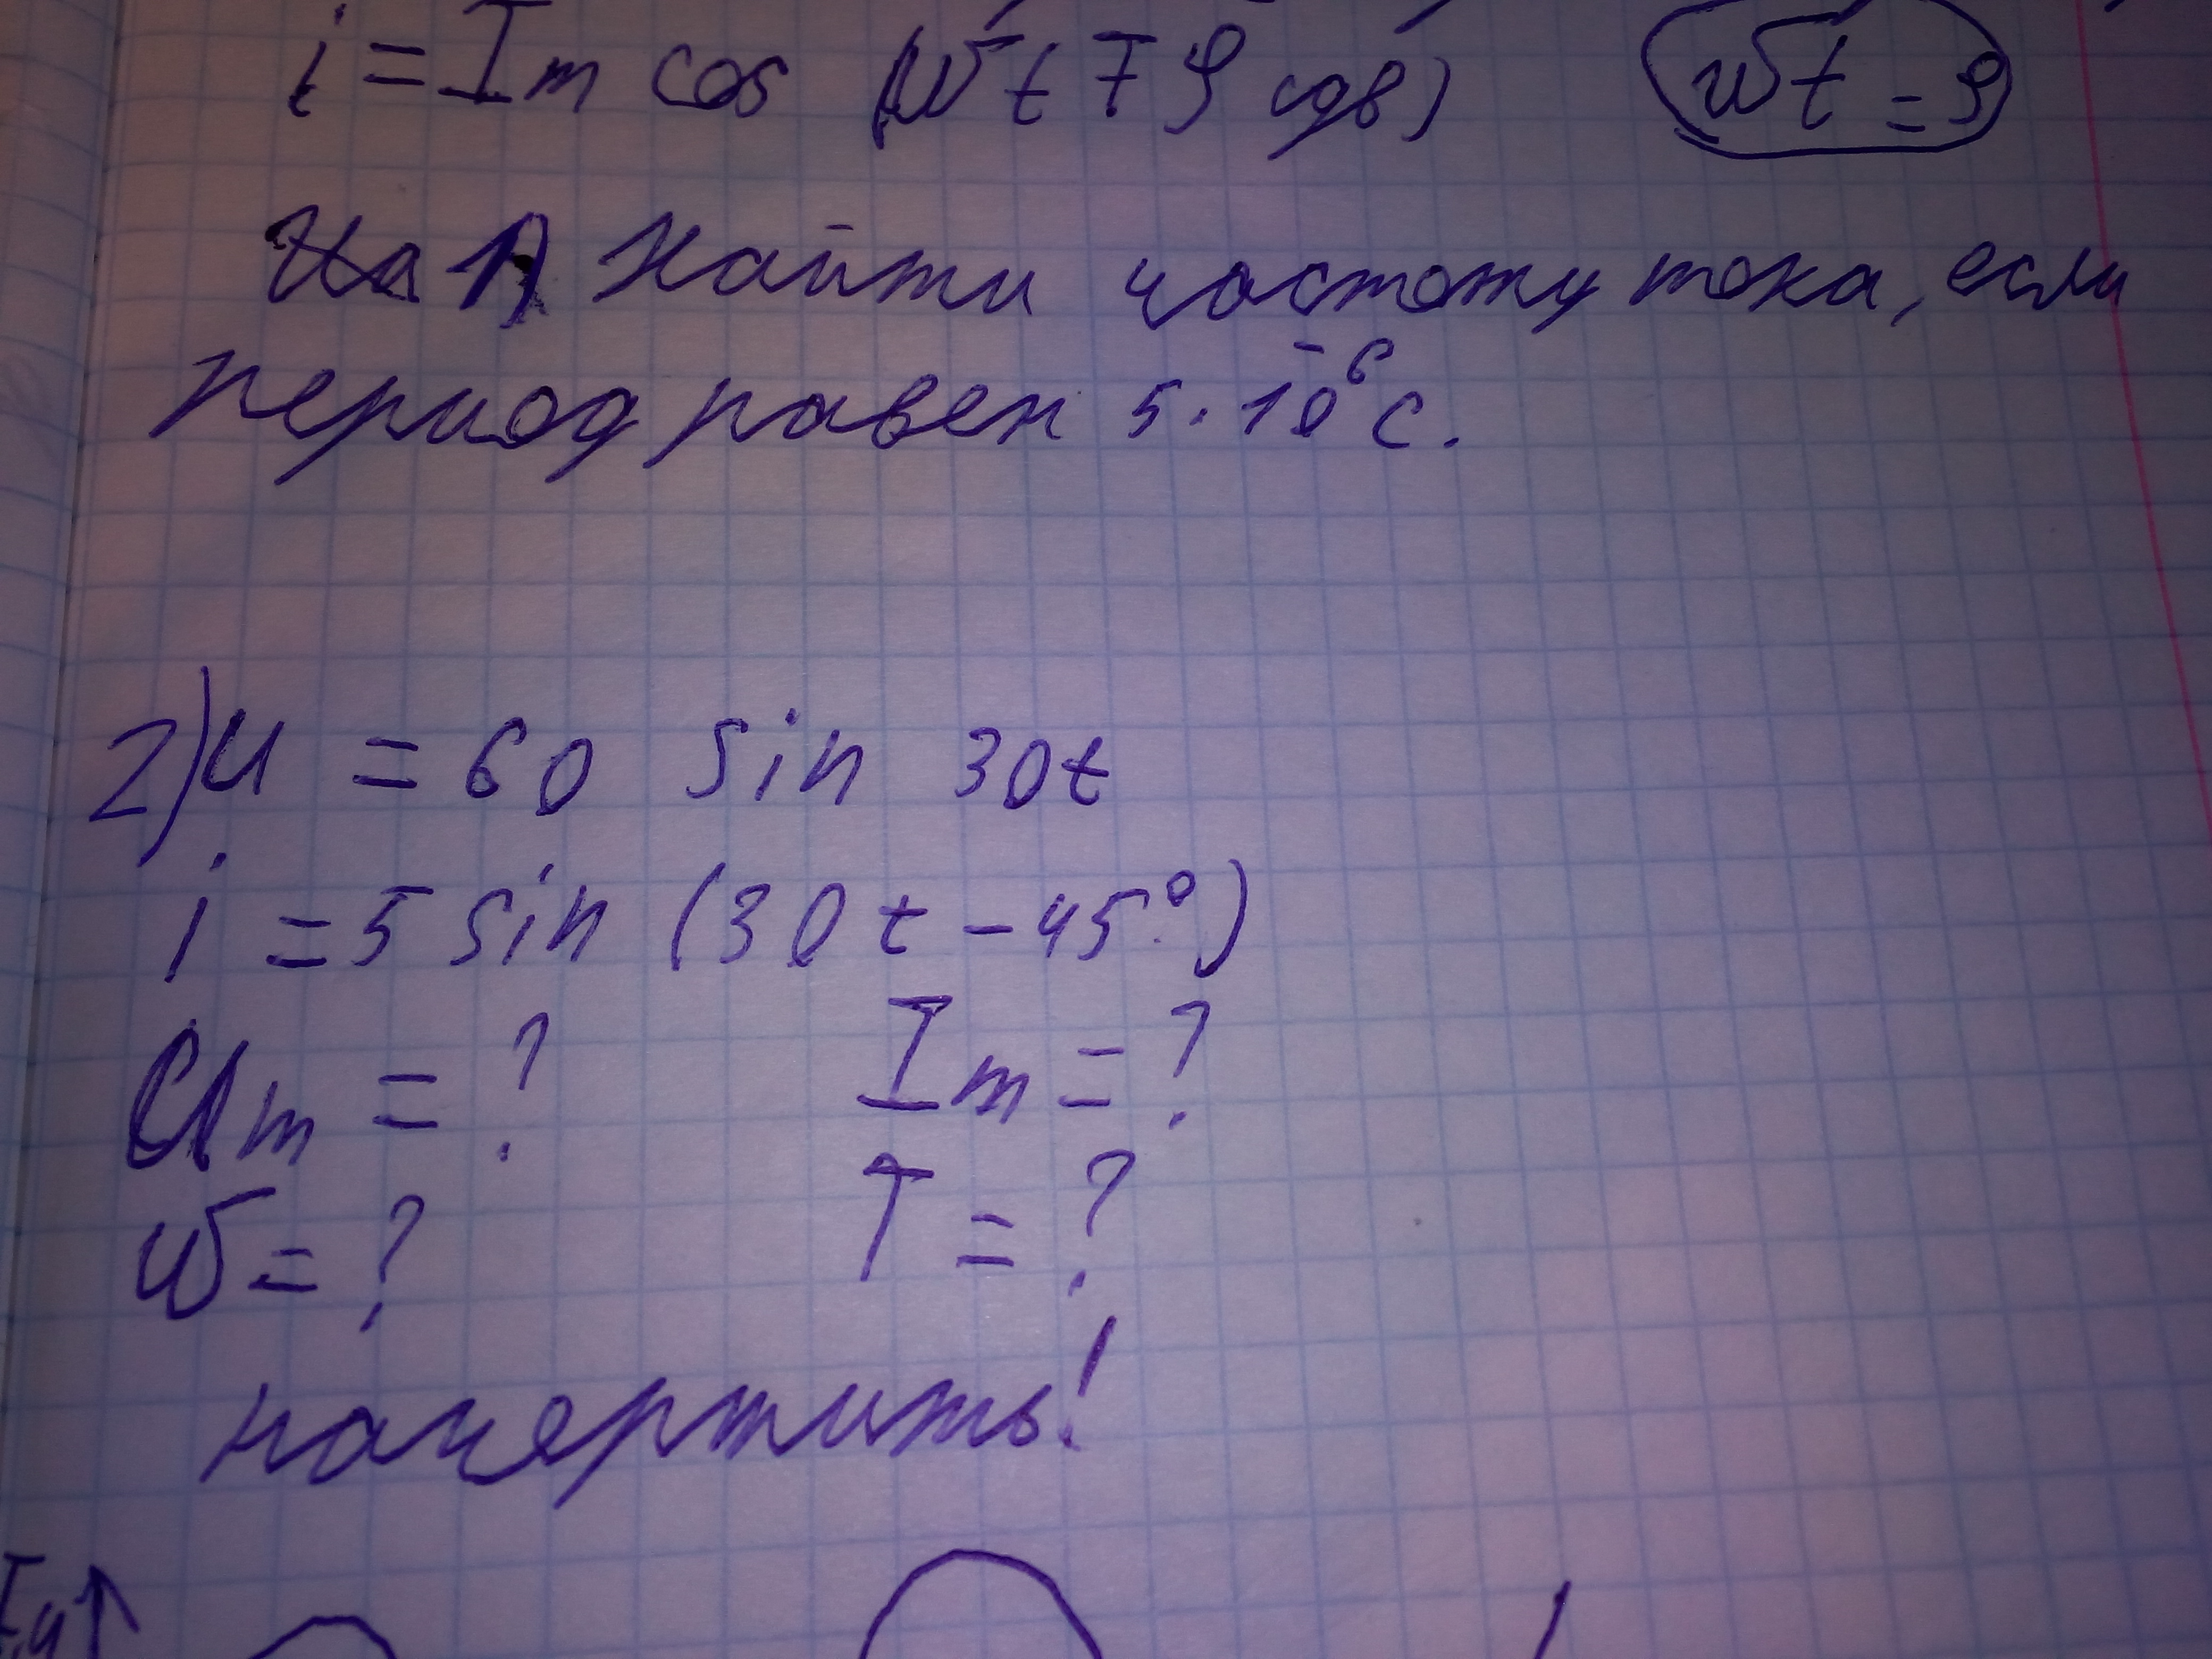 i = Im cos (ωt ∓ φ сдв) ωt = φ
1) Найти частоту тока, если
период равен 5·10⁻⁶ с.
2) u = 60 sin 30t
i = 5 sin (30t - 45°)
Um = ? Im = ?
ω = ? T = ?
начертить!
I,u